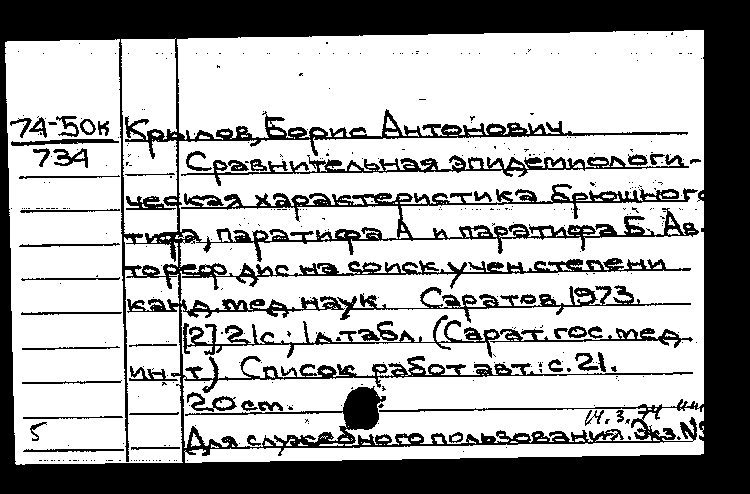 74-50к Крылов, Борис Антонович.
734 Сравнительная эпидемиологи-
ческая характеристика брюшного
тифа, паратифа А и паратифа Б. Ав-
тореф. дис. на соиск. учен. степени
канд. мед. наук. Саратов, 1973.
[2], 21с.; 1 л. табл. (Сарат. гос. мед.
ин-т) Список работ авт.: с. 21.
20 см.
14.3.74
5 Для служебного пользования. Экз. №